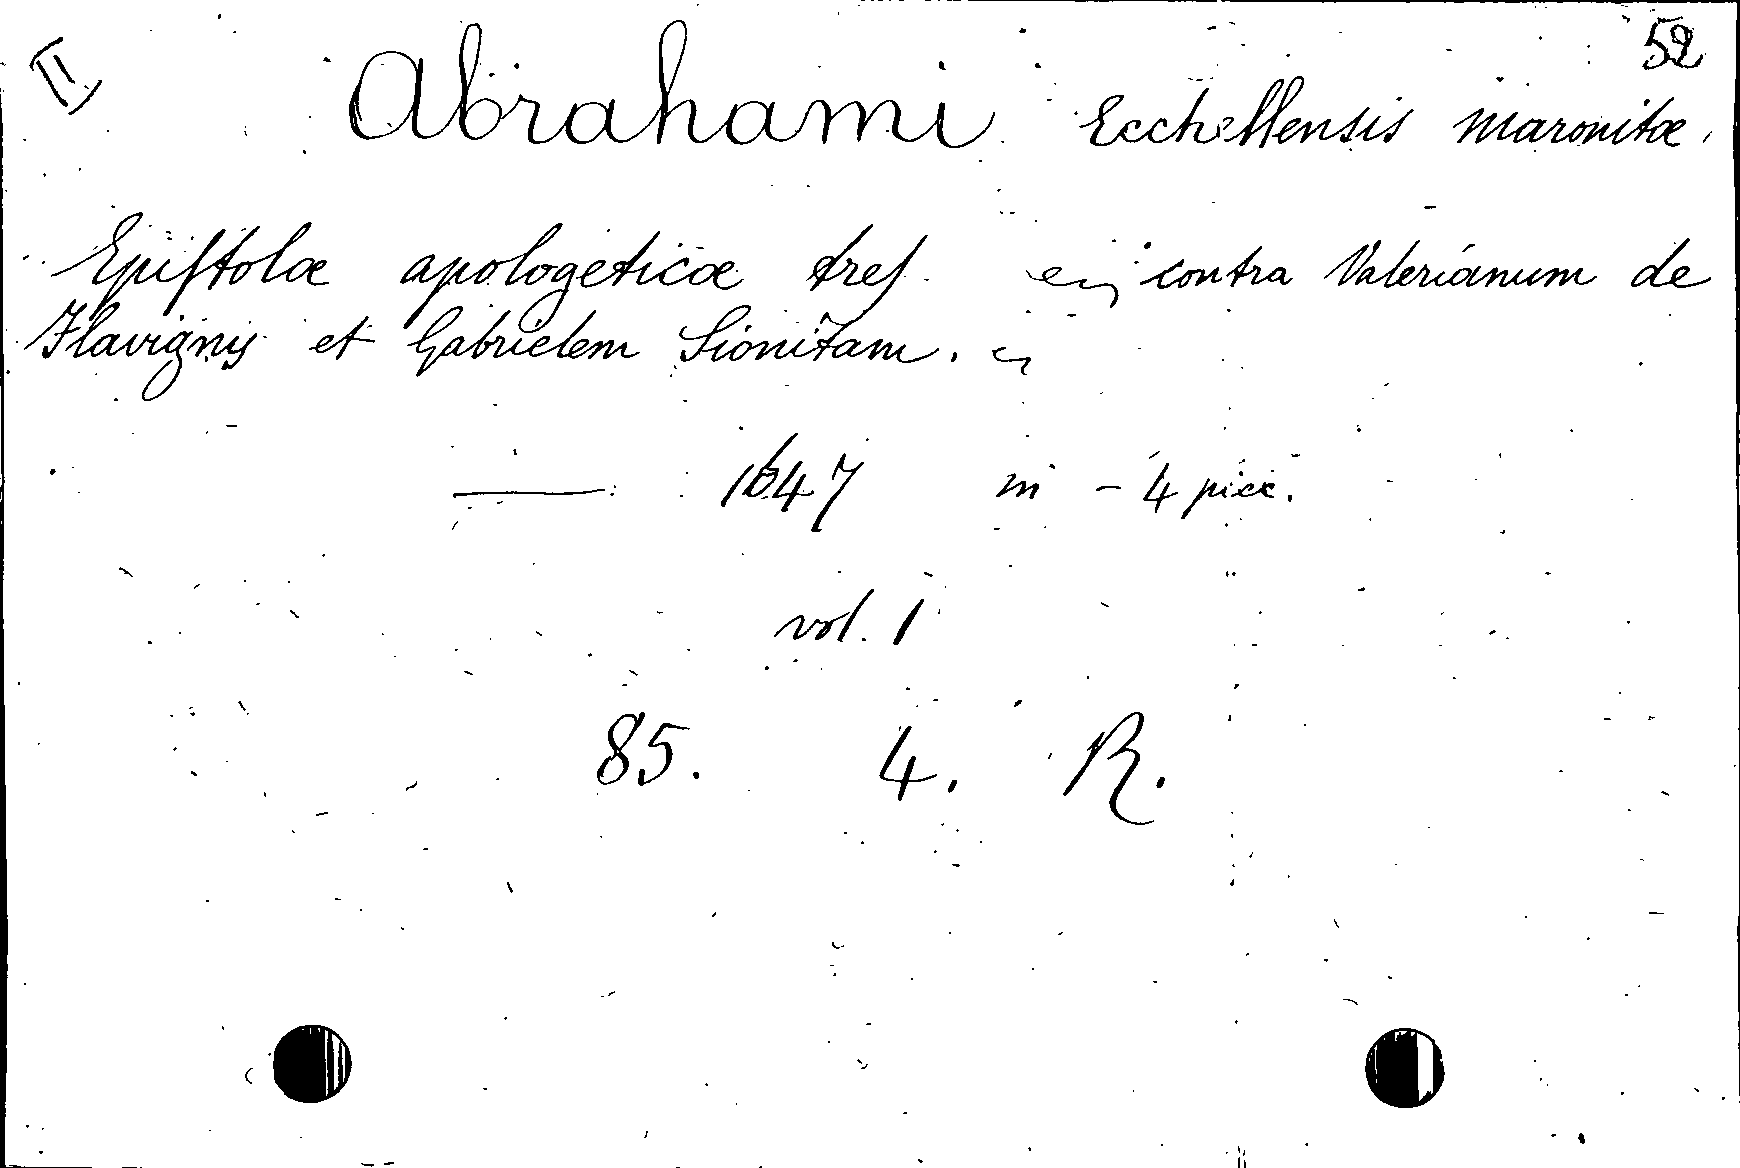 II
52
Abrahami Ecchellensis maronitæ.
Epistolæ apologeticæ tres contra Valerianum de
Flavigny et Gabrielem Sionitam.
— 1647 in - 4 picc.
vol. 1
85. 4. R.